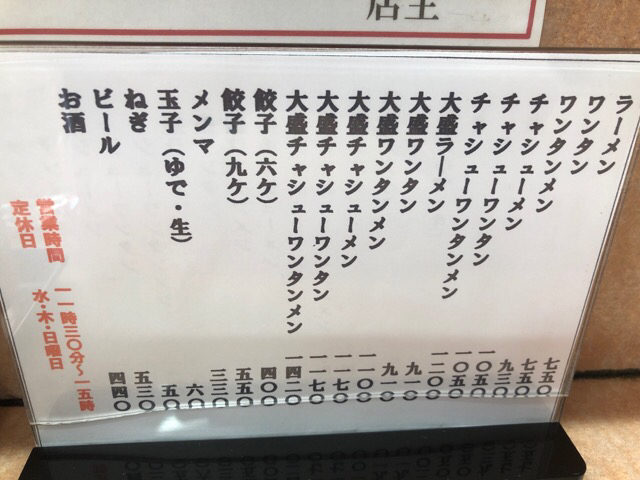 店主
ラーメン 七五〇
ワンタン 七五〇
ワンタンメン 九三〇
チャシューメン 一〇五〇
チャシューワンタン 一〇五〇
チャシューワンタンメン 一二〇〇
大盛ラーメン 九一〇
大盛ワンタン 九一〇
大盛ワンタンメン 一一〇〇
大盛チャシューメン 一一七〇
大盛チャシューワンタン 一一七〇
大盛チャシューワンタンメン 一四二〇
餃子（六ケ） 四〇〇
餃子（九ケ） 五五〇
メンマ 三三〇
玉子（ゆで・生） 六〇
ねぎ 五〇
ビール 五三〇
お酒 四四〇
営業時間 一一時三〇分～一五時
定休日 水・木・日曜日